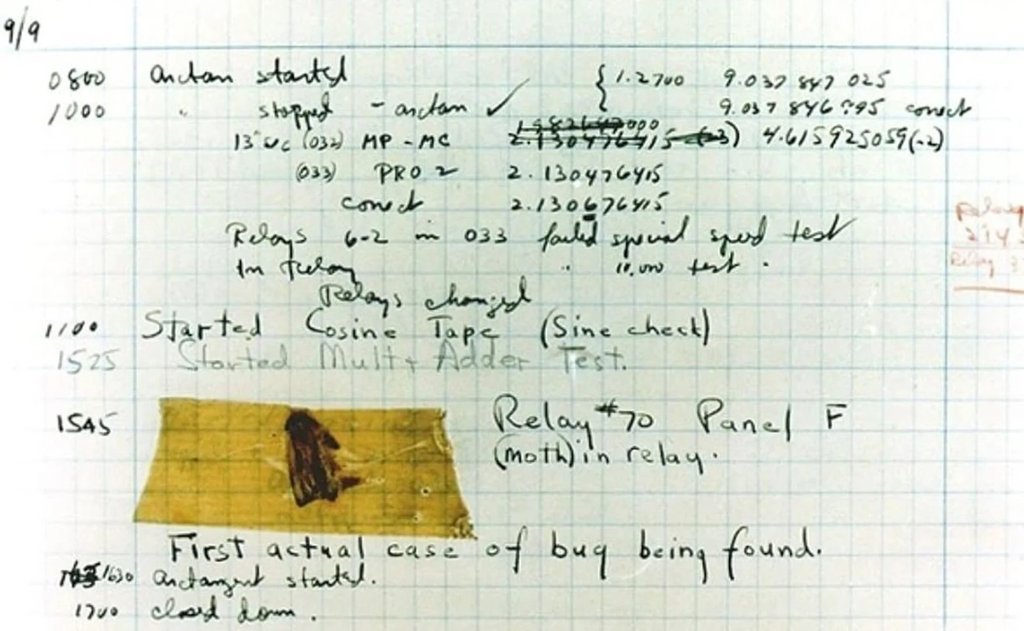 9/9
0800 arctan started { 1.2700 9.037 847 025
1000 " stopped - arctan ✓ 9.037 846 995 correct
13" uc (032) MP - MC 2.130476415 (-3) 4.615925059(-2)
(033) PRO 2 2.130476415
correct 2.130676415
Relays 6-2 in 033 failed special speed test
In Relay " 10.000 test .
Relay
214
Relay 3
Relays changed
1100 Started Cosine Tape (Sine check)
1525 Started Mult + Adder Test.
1545 Relay #70 Panel F
(moth) in relay.
First actual case of bug being found.
1630 arctangent started.
1700 closed down .